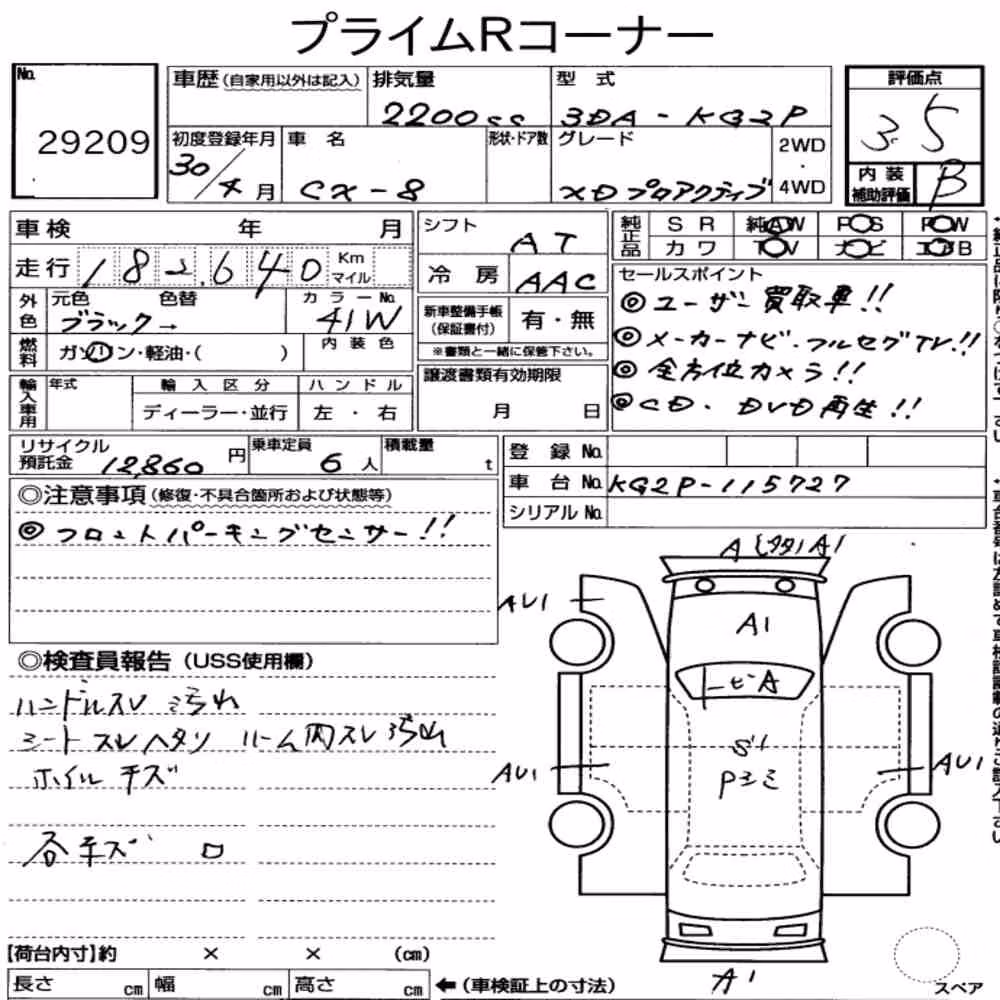 プライムRコーナー
No.
29209
車歴(自家用以外は記入)
排気量
2200cc
型 式
3DA-KG2P
評価点
3.5
初度登録年月
30/4月
車 名
CX-8
形状・ドア数
グレード
XDプロアクティブ
2WD
・
4WD
内 装
補助評価
B
車検 年 月
走行 182,640 Km マイル
シフト
AT
冷 房 AAC
純正品
S R 純AW P S P W
カ ワ T V ナ ビ エアB
外色
元色 色替
ブラック→
カラーNo.
41W
燃料
ガソリン・軽油・( )
内 装 色
新車整備手帳
(保証書付)
有・無
※書類と一緒に保管下さい。
セールスポイント
◎ユーザー買取車!!
◎メーカーナビ・フルセグTV!!
◎全方位カメラ!!
◎CD・DVD再生!!
輸入車用
年式
輸 入 区 分
ディーラー・並行
ハ ン ド ル
左 ・ 右
譲渡書類有効期限
月 日
リサイクル
預託金 12,860 円
乗車定員
6 人
積載量
t
登 録 No.
車 台 No. KG2P-115727
シリアル No.
◎注意事項(修復・不具合箇所および状態等)
◎フロントパーキングセンサー!!
A A1
AU1
A1
トビA
S'1
Pシミ
AU1
AU1
A1
◎検査員報告(USS使用欄)
ハンドルスレ 汚れ
シート スレ ヘタリ ルーム内スレ汚れ
ホイル キズ
各キズ ロ
【荷台内寸】約 × × (cm)
長さ cm 幅 cm 高さ cm ←(車検証上の寸法)
スペア